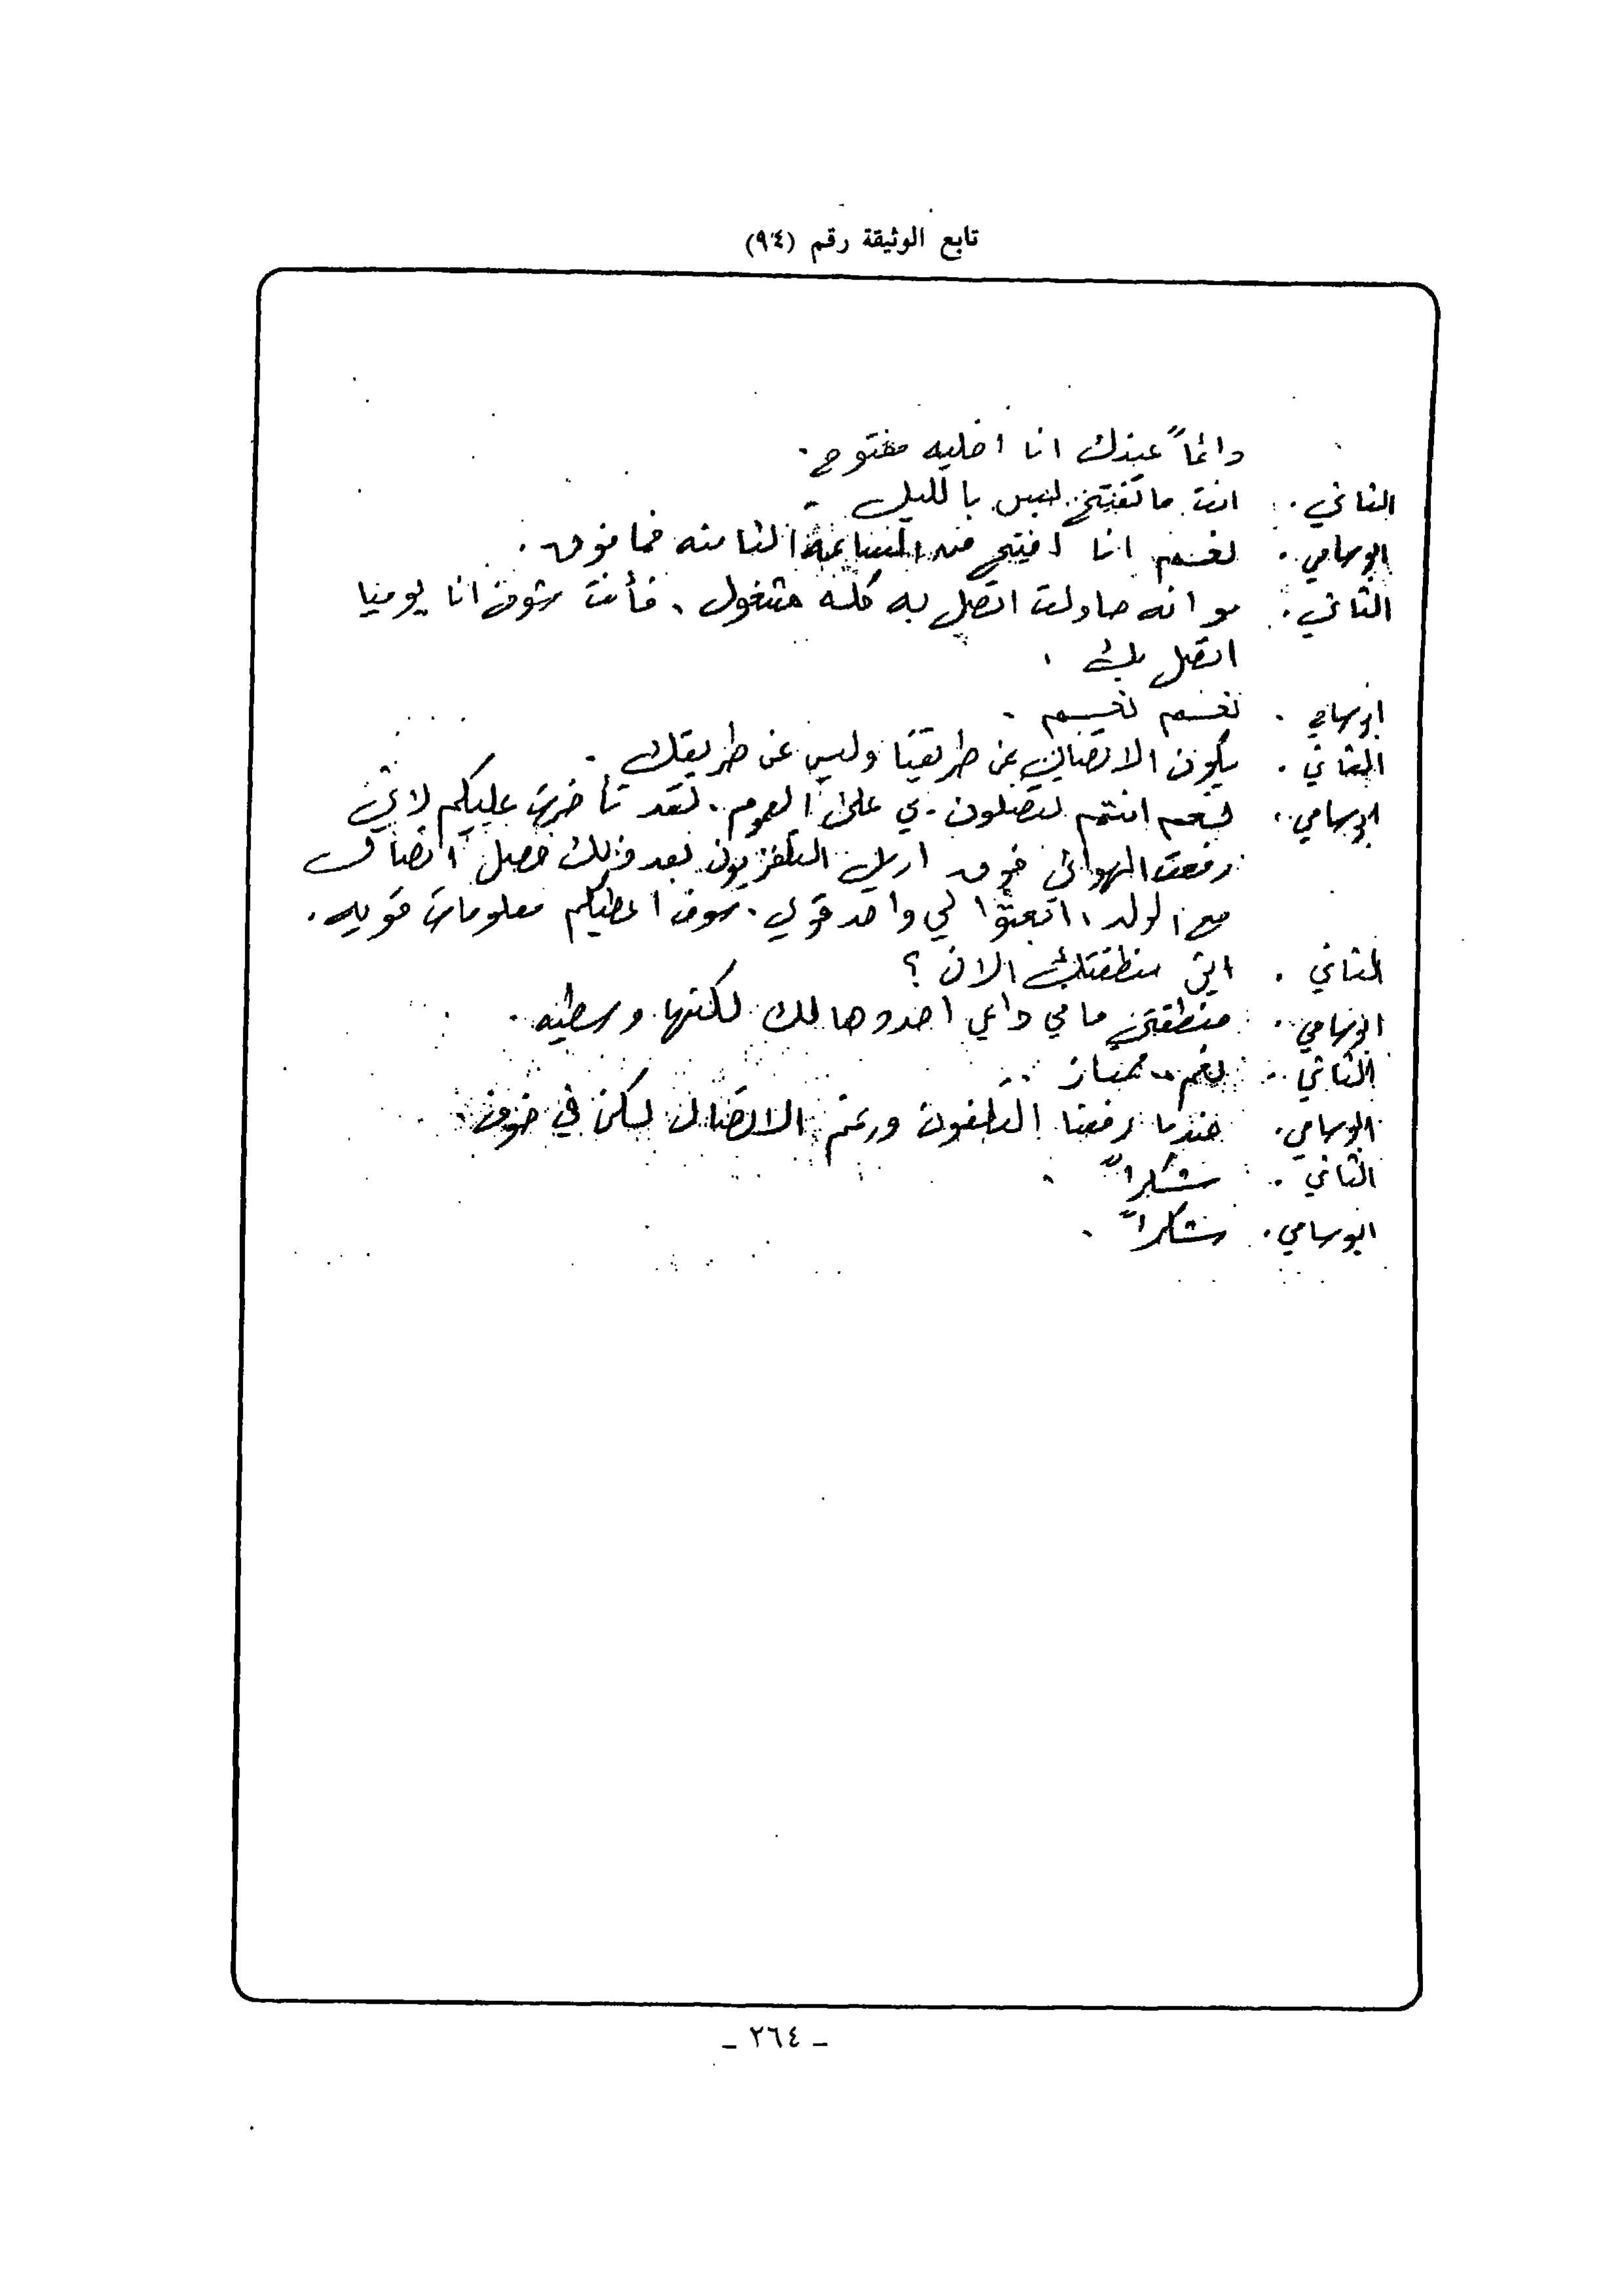 تابع الوثيقة رقم (٩٤)
دائماً عندك انا اخليه مفتوح .
الثاني . انت ما تفتح ليس بالليل .
ابو سامي . نعم انا افتح من الساعة الثامنه فما فوق .
الثاني . مو انه حاولت اتصل به كله مشغول . فأنت شوف انا يوميا
اتصل بك .
ابو سامي . نعم نعم .
الثاني . يكون الاتصال عن طريقنا وليس عن طريقك .
ابو سامي . نعم انتم تتصلون بي على العموم . لقد تأخرت عليكم لاني
رفعت الهوائي فوق اريل التلفزيون بعد ذلك حصل اتصال
مع الولد ، ابعثوا لي واحد قوي . سوف اعطيكم معلومات قويه .
الثاني . اين منطقتك الان ؟
ابو سامي . منطقتي ما في داعي احددها لك لكنها وسطيه .
الثاني . نعم .. ممتاز ..
ابو سامي . عندما رفعنا التلفون ورغم الاتصال لكن في خوف .
الثاني . شكراً .
ابو سامي . شكراً .
- ٢٦٤ -